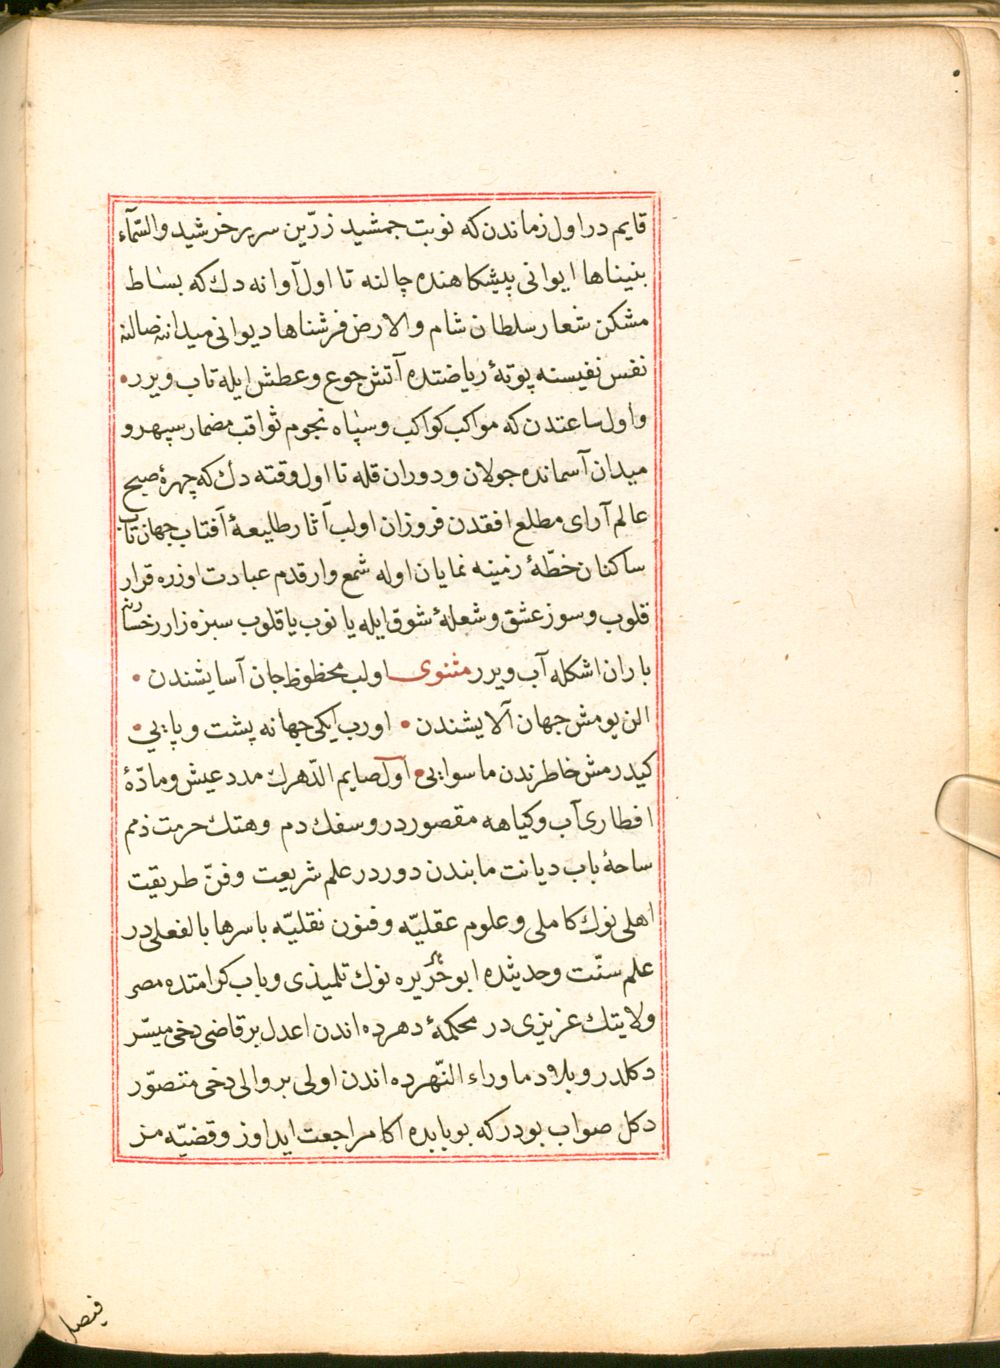 قايم در اول زماندن كه نوبت جمشيد زرّين سرير خرشيد والسّمآء
بنيناها ايوانى پيشكاهنده چالنه تا اول آوانه دك كه بساط
مشكن شعار سلطان شام والارض فرشناها ديوانى ميداننه صالنه
نفس نفيسنه پوتۀ رياضتده آتش جوع وعطش ايله تاب ويرر •
واول ساعتدن كه مواكب كواكب وسپاه نجوم ثواقب مضمار سپهر و
ميدان آسمانده جولان ودوران قله تا اول وقته دك كه چهرۀ صبح
عالم آراى مطلع افقدن فروزان اولب آثار طليعۀ آفتاب جهان تاب
ساكنان خطّۀ زمينه نمايان اوله شمع وار قدم عبادت اوزره قرار
قلوب وسوز عشق وشعلۀ شوق ايله يانوب ياقلوب سبزه زار رخسارنه
باران اشكله آب ويرر مثنوى اولب محظوظ جان آسايشندن •
الن يومش جهان آلايشندن • اورب ايكى جهانه پشت وپايى •
كيدرمش خاطرندن ماسوايى • اول صايم الدّهرك مدد عيش ومادّۀ
افطارى آب وكياهه مقصور در وسفك دم وهتك حرمت ذمم
ساحۀ باب ديانت مابندن دوردر علم شريعت وفنّ طريقت
اهلى نوك كاملى وعلوم عقليّه وفنون نقليّه باسرها بالفعلى در
علم سنّت وحديثده ابو هريره نوك تلميذى وباب كرامتده مصر
ولايتك عزيزى در محكمۀ دهرده اندن اعدل بر قاضى دخى ميسّر
دكلدر وبلاد ماوراء النّهرده اندن اولى بر والى دخى متصوّر
دكل صواب بودر كه بو بابده اكا مراجعت ايداوز وقضيّه مز
فيصل